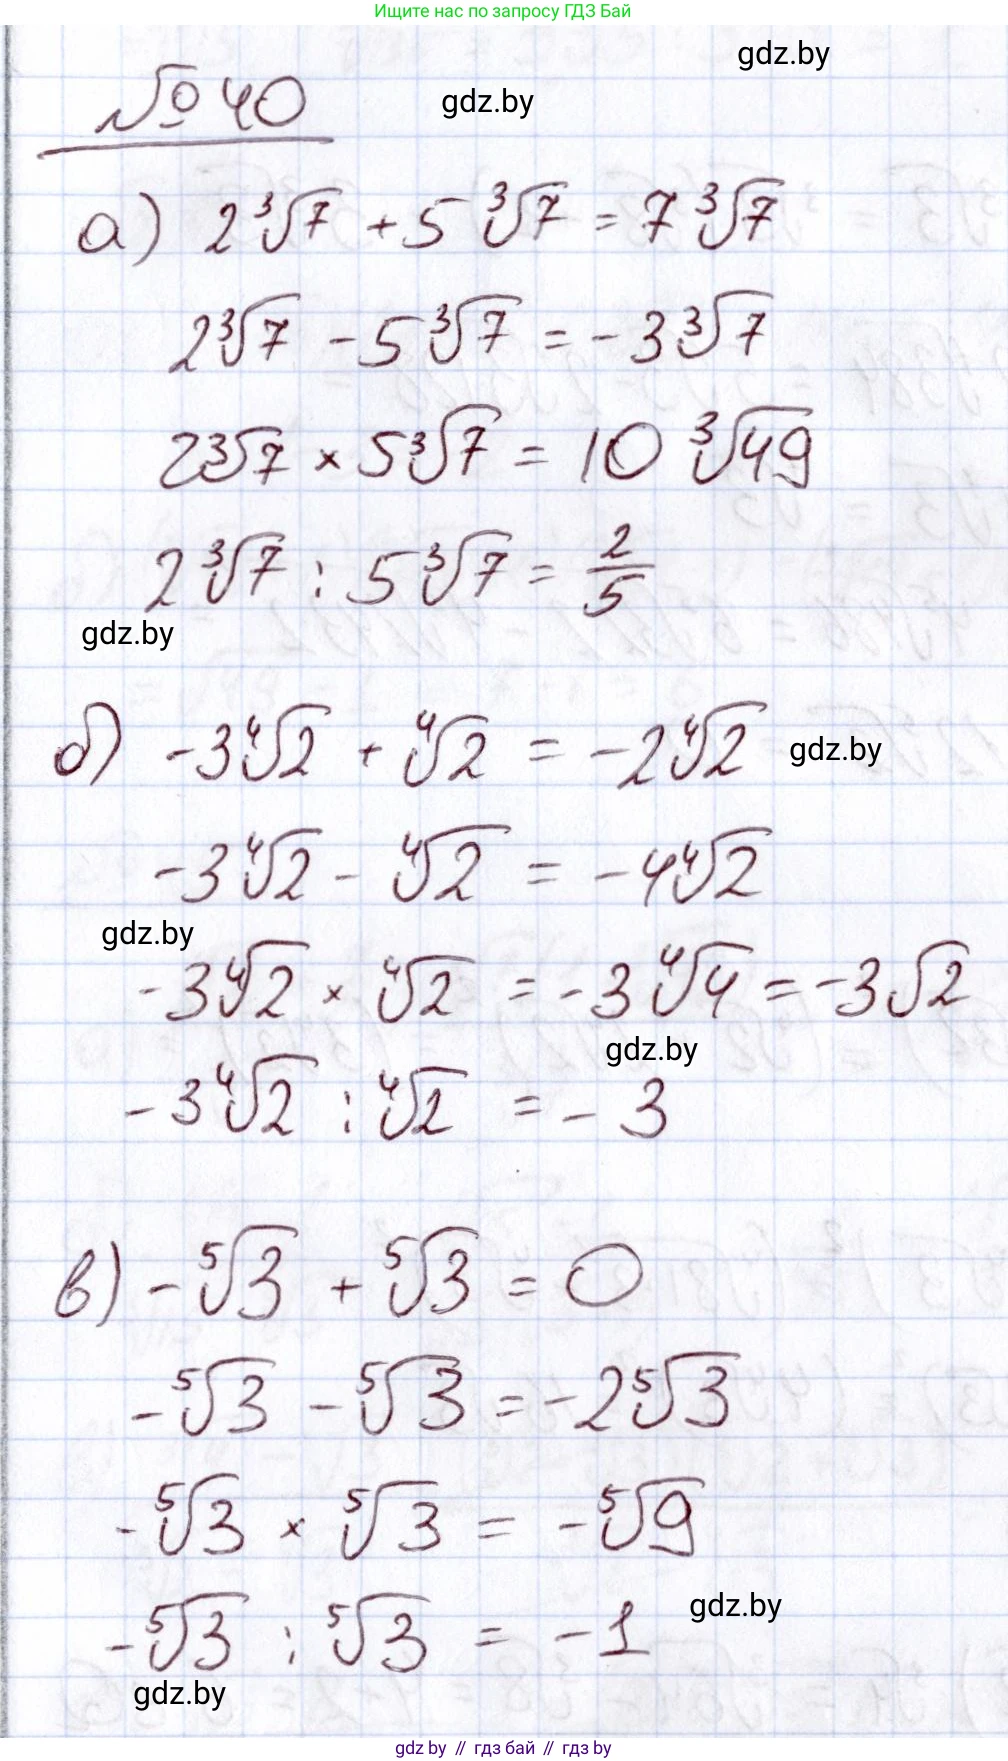 Ищите нас по запросу ГДЗ Бай
gdz.by
№ 40 gdz.by
а) 2∛7 + 5∛7 = 7∛7
2∛7 - 5∛7 = -3∛7
2∛7 × 5∛7 = 10∛49
2∛7 : 5∛7 = 2/5
gdz.by
б) -3∜2 + ∜2 = -2∜2 gdz.by
-3∜2 - ∜2 = -4∜2
gdz.by
-3∜2 × ∜2 = -3∜4 = -3√2
gdz.by
-3∜2 : ∜2 = -3
в) -⁵√3 + ⁵√3 = 0
-⁵√3 - ⁵√3 = -2⁵√3
-⁵√3 × ⁵√3 = -⁵√9
gdz.by
-⁵√3 : ⁵√3 = -1
gdz.by
gdz.by // гдз бай // gdz by